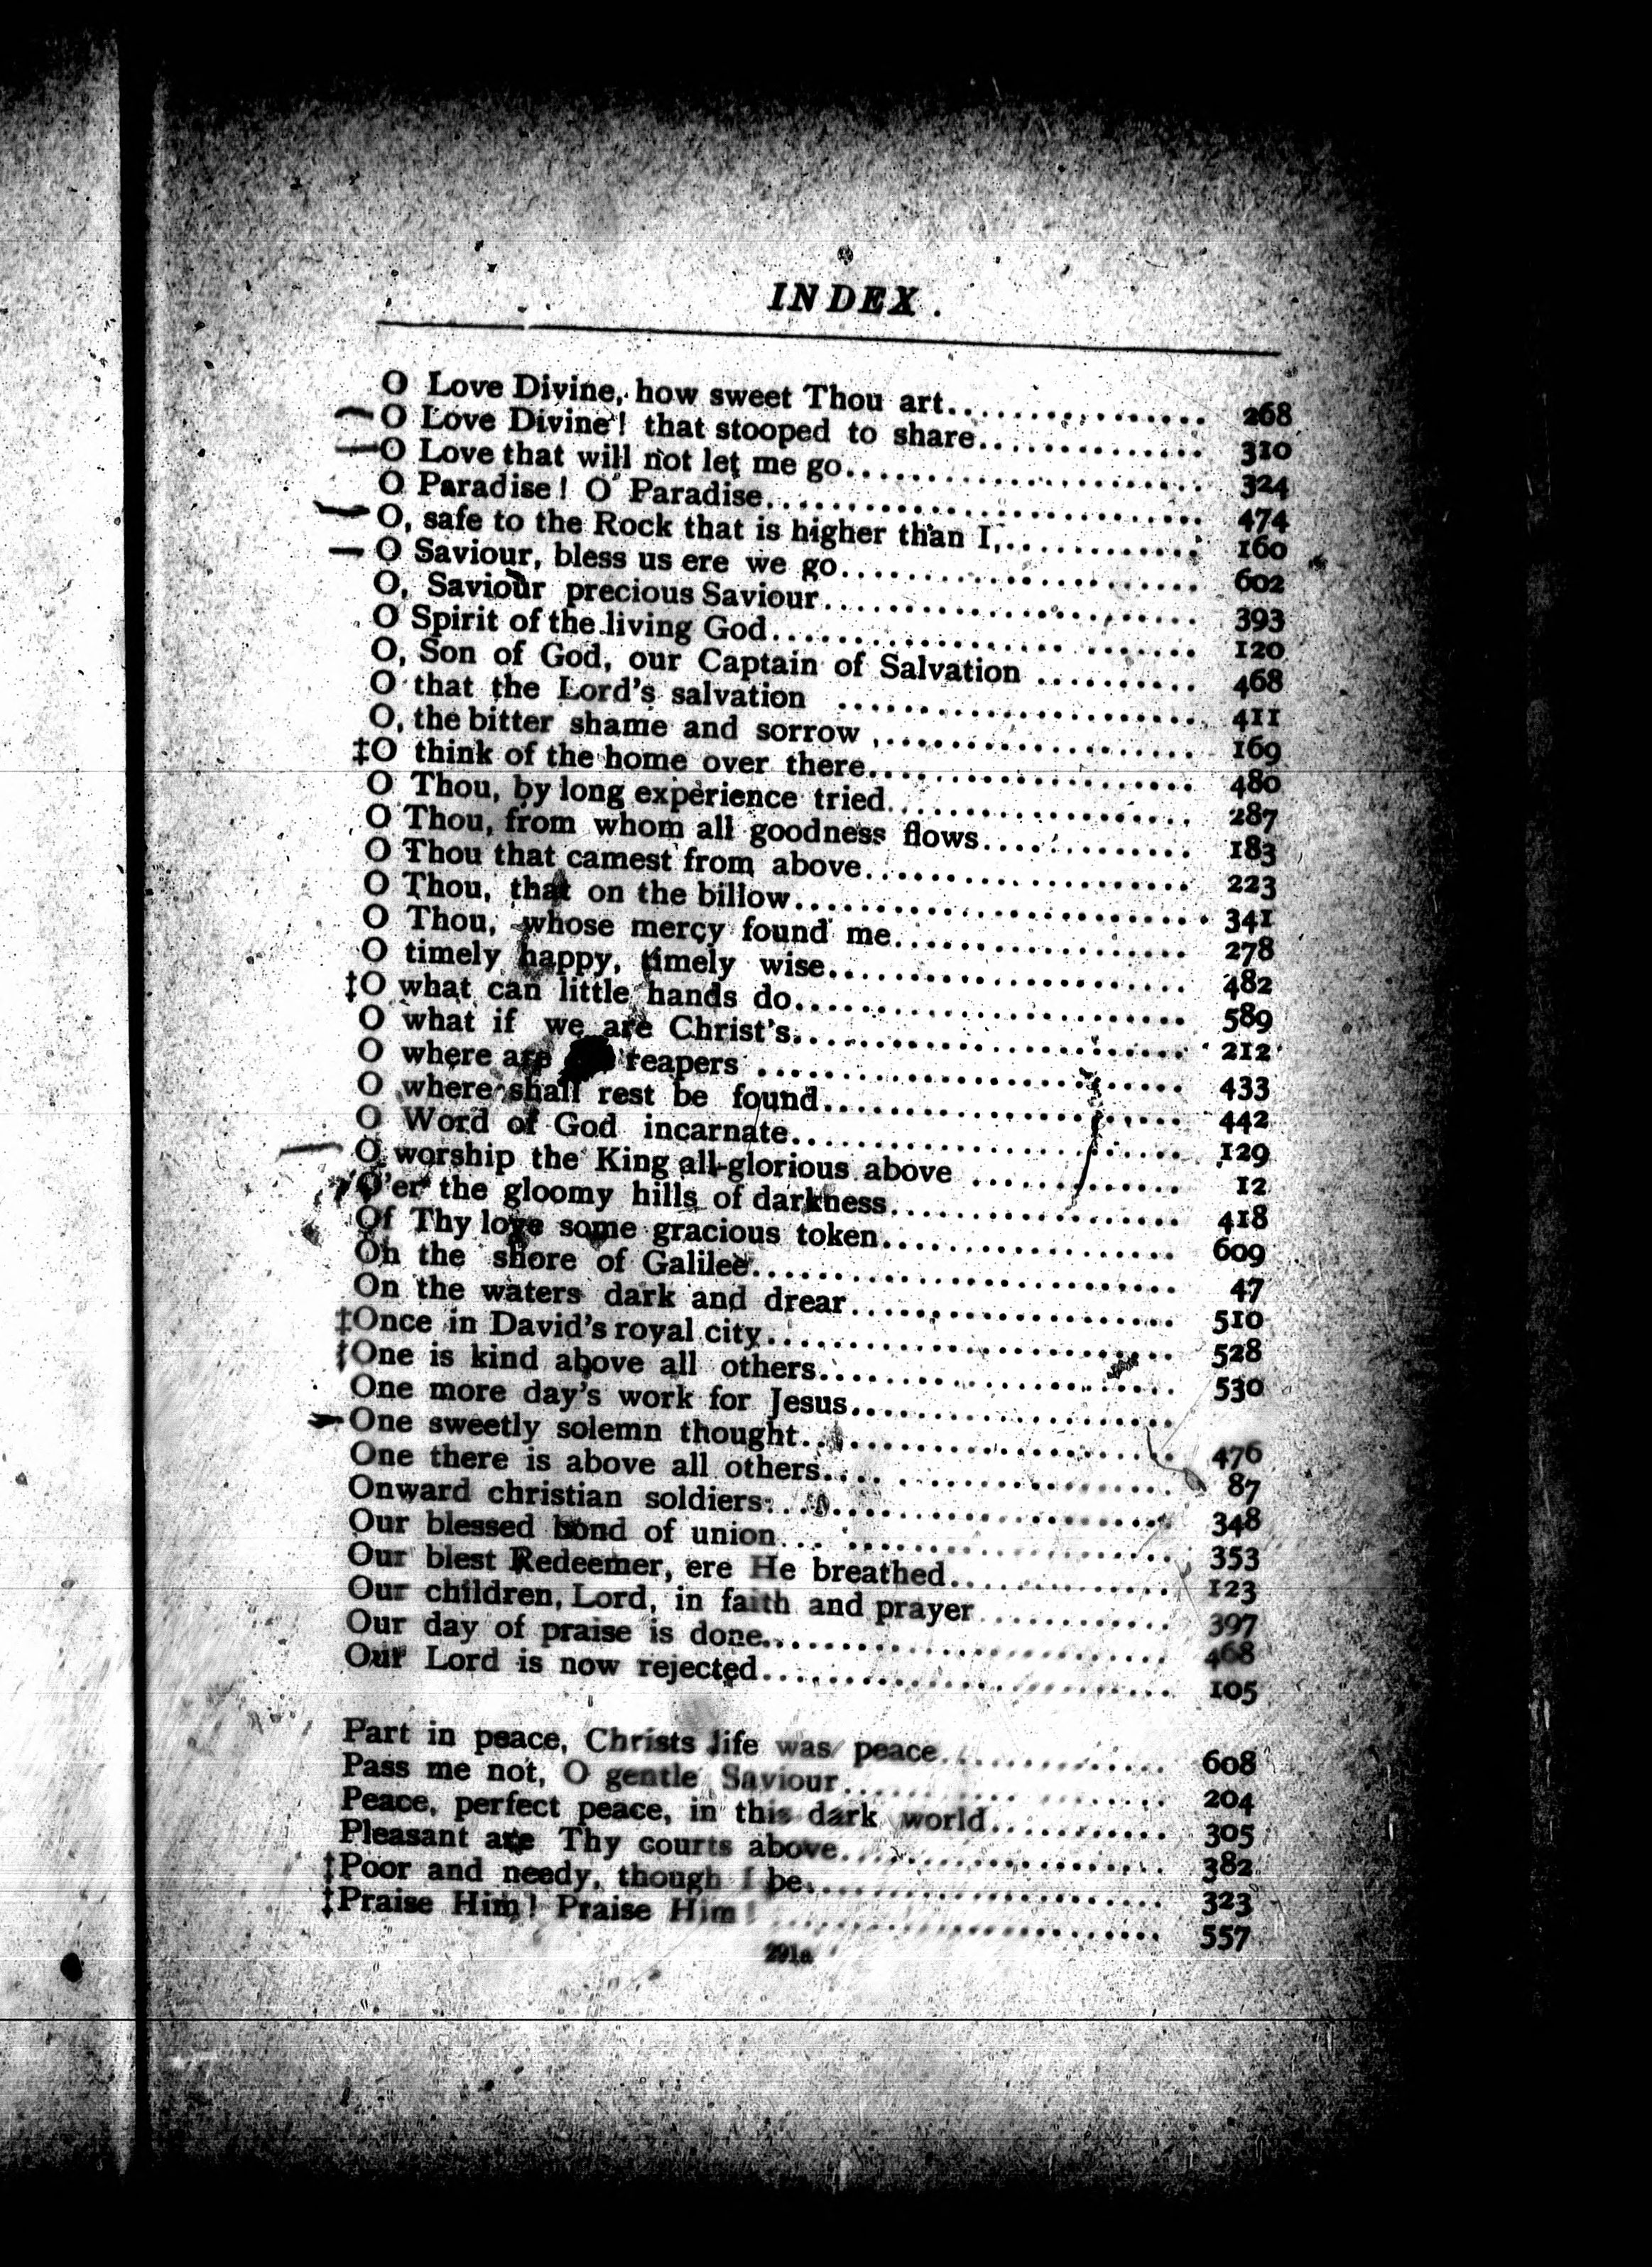 INDEX.
O Love Divine, how sweet Thou art................ 268
O Love Divine! that stooped to share............. 310
O Love that will not let me go.................... 324
O Paradise! O Paradise........................... 474
O, safe to the Rock that is higher than I,........... 160
O Saviour, bless us ere we go..................... 602
O, Saviour precious Saviour...................... 393
O Spirit of the living God......................... 120
O, Son of God, our Captain of Salvation .......... 468
O that the Lord's salvation ...................... 411
O, the bitter shame and sorrow ................... 169
‡O think of the home over there................... 480
O Thou, by long experience tried.................. 287
O Thou, from whom all goodness flows............ 183
O Thou that camest from above................... 223
O Thou, that on the billow........................ 341
O Thou, whose mercy found me................. 278
O timely happy, timely wise..................... 482
‡O what can little hands do....................... 589
O what if we are Christ's........................ 212
O where are reapers ......................... 433
O where shall rest be found...................... 442
O Word of God incarnate........................ 129
O worship the King all-glorious above ............ 12
O'er the gloomy hills of darkness................. 418
Of Thy love some gracious token................. 609
On the shore of Galilee......................... 47
On the waters dark and drear.................... 510
‡Once in David's royal city....................... 528
‡One is kind above all others..................... 530
One more day's work for Jesus...................
One sweetly solemn thought...................... 476
One there is above all others.................... 87
Onward christian soldiers........................ 348
Our blessed bond of union....................... 353
Our blest Redeemer, ere He breathed............. 123
Our children, Lord, in faith and prayer............ 397
Our day of praise is done........................ 468
Our Lord is now rejected........................ 105
Part in peace, Christs life was peace............. 608
Pass me not, O gentle Saviour................... 204
Peace, perfect peace, in this dark world........... 305
Pleasant are Thy courts above................... 382
‡Poor and needy, though I be..................... 323
‡Praise Him! Praise Him! ........................ 557
291a